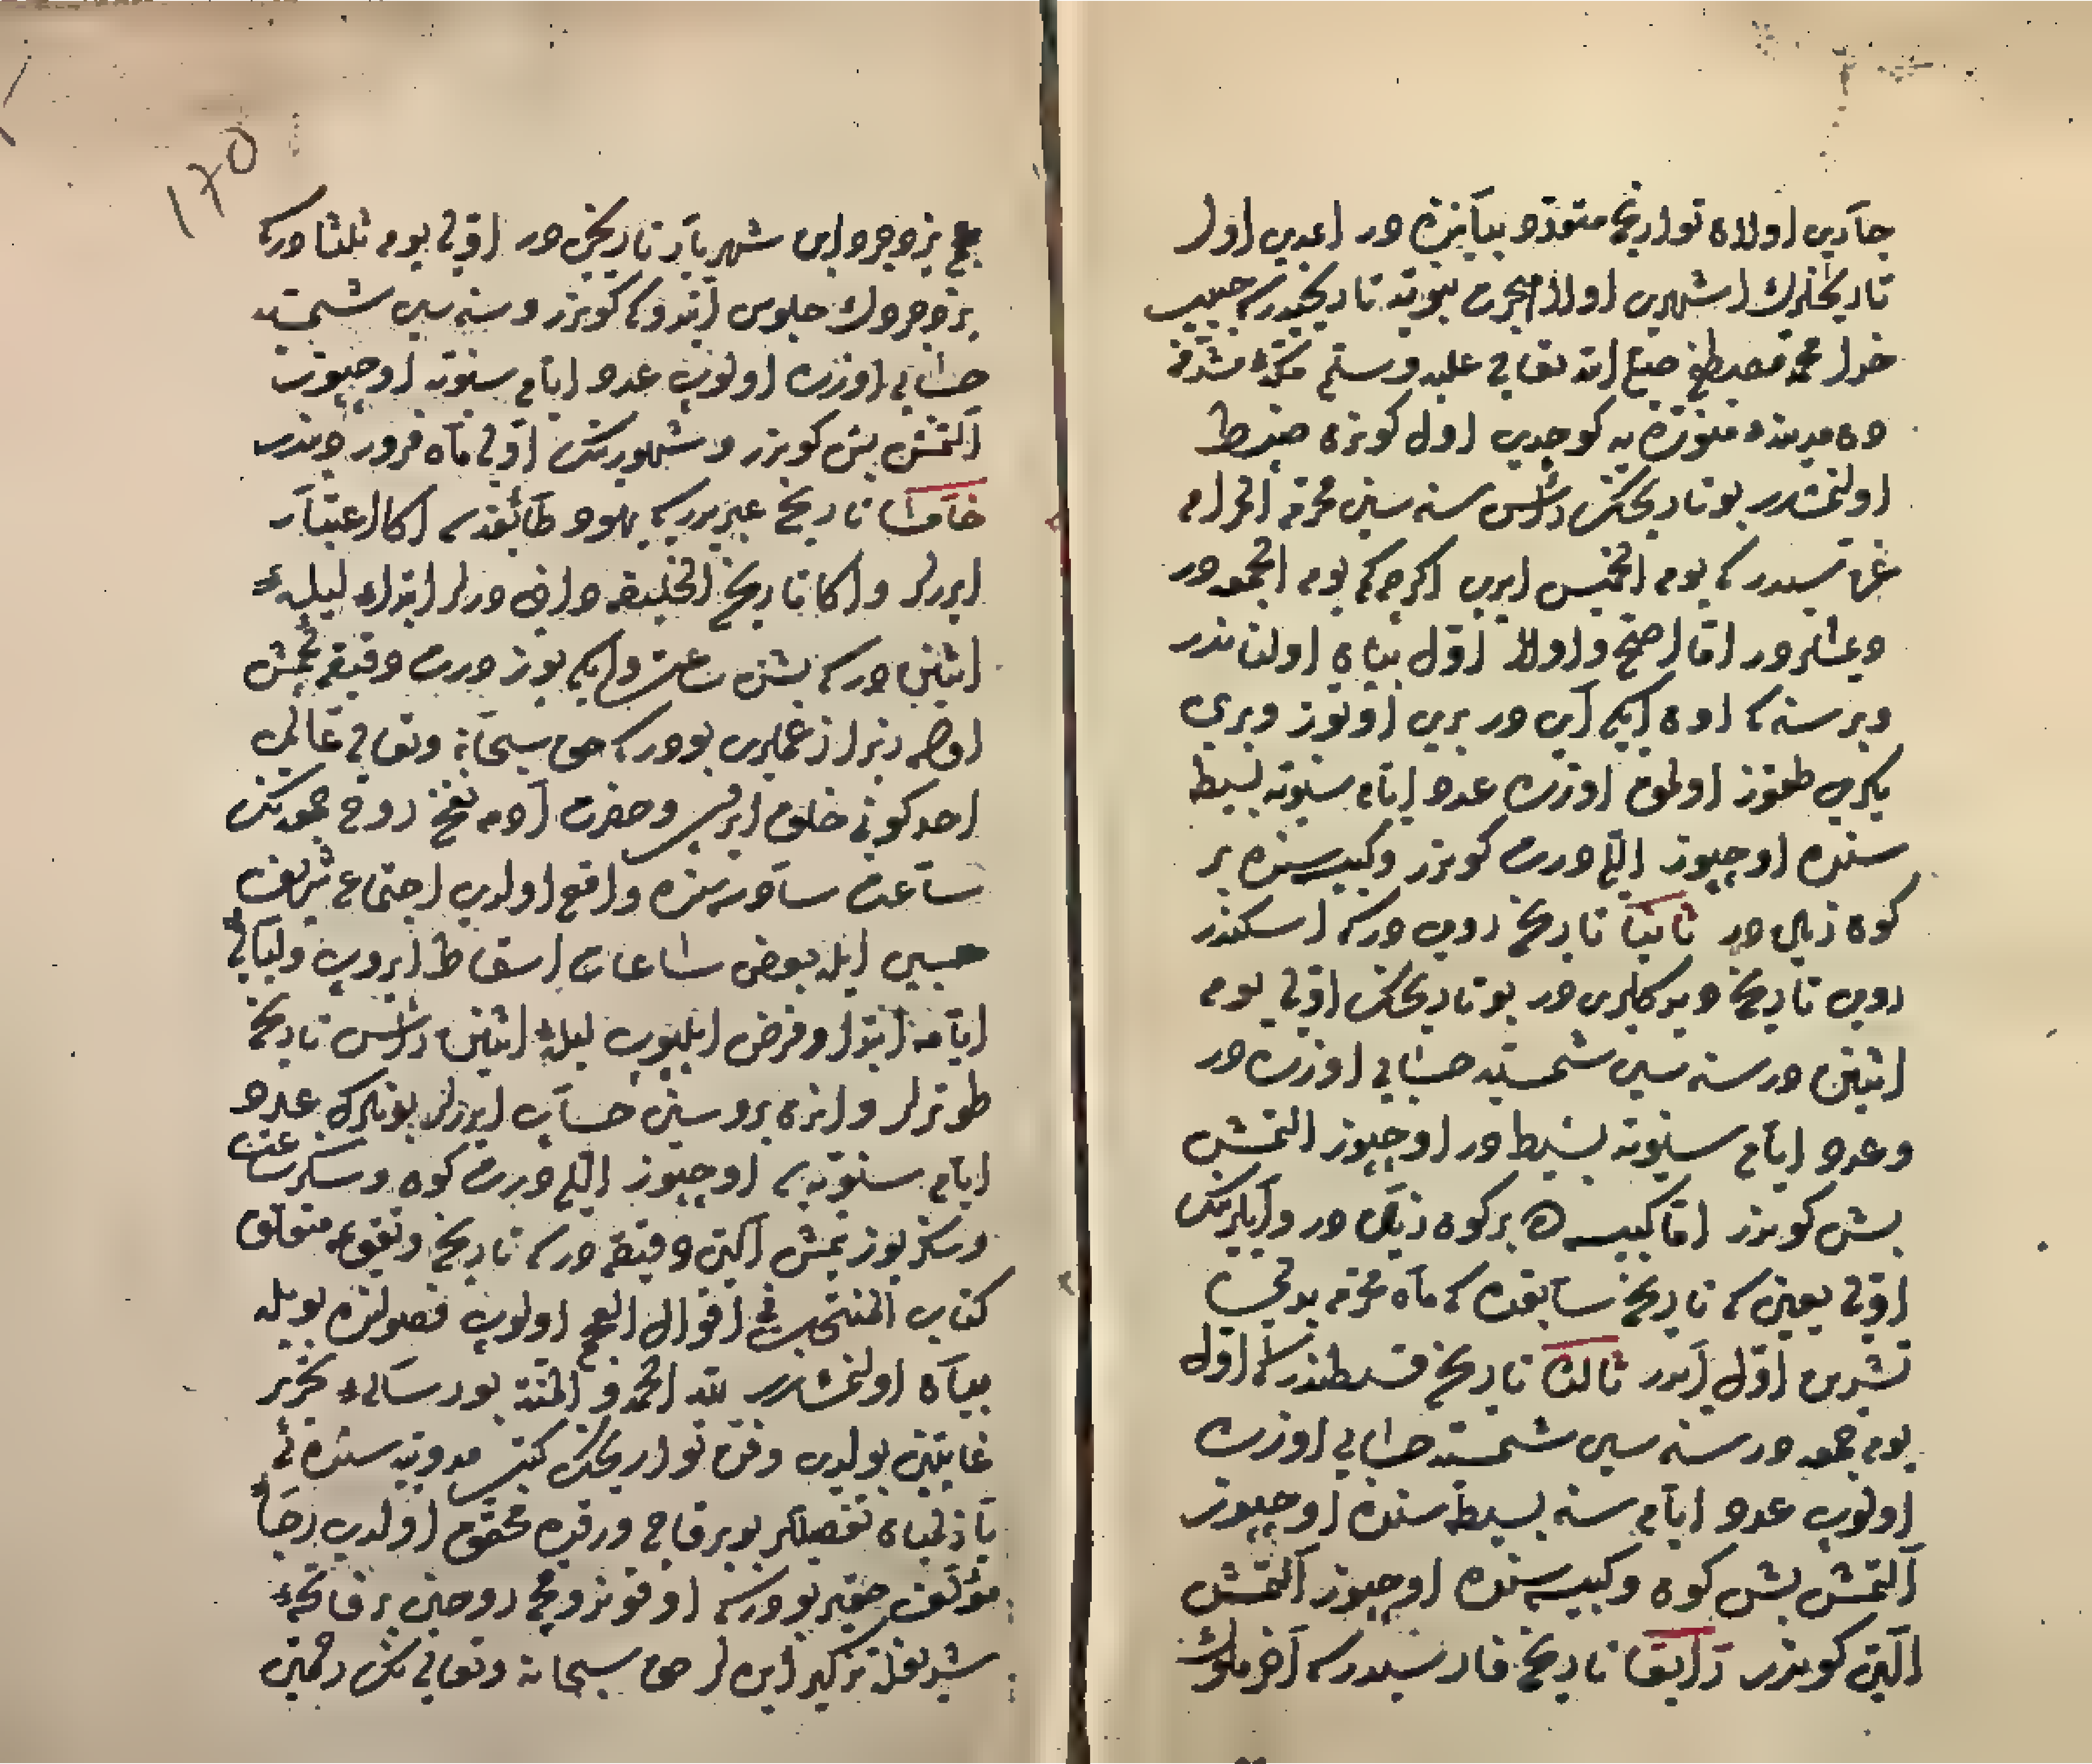 جاری اولان تواریخ متعدده بیاننده در ایمدی اول
تاریخلرك اشهری اولا هجرت نبویه تاریخیدر كه حبیب
خدا محمد مصطفی صلی الله تعالی علیه وسلم مكه مشرفه
دن مدینه منوره یه كوچدی اول كونده ضبط
اولنمشدر بو تاریخك رأس سنه سی محرم الحرام
غره سیدر كه یوم الخمیس ایدی اكرچه یوم الجمعه در
دیمشلردر اما اصح و اولا اول بیان اولناندر
و بر سنه اون ایكی آی در بری اوتوز و بری
یكرمی طقوز اولمق اوزره عدد ایام سنویه بسیط
سنده اوچیوز اللی درت كوندر و كبیسه سنده بر
كون زیاده در ثانیا تاریخ رومی در كه اسكندر
رومی تاریخی دیدكلری در بو تاریخك اولی یوم
اثنین در سنه سی شمسیه حسابی اوزره در
و عدد ایام سنویه بسیط در اوچیوز التمش
بش كوندر اما كبیسه ده بر كون زیاده در و آیلرینك
اولی یعنی كه تاریخ سابقده كه ماه محرم یری
تشرین اول آیدر ثالثا تاریخ قبطیدر كه اول
یوم جمعه در سنه سی شمسیه حسابی اوزره
اولوب عدد ایام سنه بسیطه سنده اوچیوز
التمش بش كون و كبیسه سنده اوچیوز التمش
التی كوندر رابعا تاریخ فارسیدر كه آخر ملوك
170
عجم یزدجرد ابن شهریار تاریخی در اولی یوم ثلثا در كه
یزدجردك جلوس ایتدوكی كوندر و سنه سی شمسیه
حسابی اوزره اولوب عدد ایام سنویه اوچیوز
التمش بش كوندر و شهورینك اولی ماه فروردیندر
خامسا تاریخ عبریدر كه یهود طائفه سی اكا اعتبار
ایدرلر و اكا تاریخ الخلیقه داخی دیرلر ابتداء لیله
اثنین در كه بش ساعت و ایكی یوز درت دقیقه كچمش
اوله زیرا زعملری بودر كه حق سبحانه وتعالی عالمی
احد كونی خلق ایدوب و حضرت آدمه نفخ روح جمعه نك
ساعت سادسنده واقع اولدی اجتماع شریف
حسبی ایله بعض ساعات اسقاط ایدوب و لیالی
ایامه ابتدا و فرض ایلیوب لیله اثنین رأس تاریخ
طوتدلر و انده بروسنی حساب ایدرلر بونلرك عدد
ایام سنویه سی اوچیوز اللی درت كون و سكز ساعت
و سكز یوز یتمش التی دقیقه در كه تاریخ وتقویمه متعلق
كتاب المنتخب فی اقوال العجم اولوب فصولنده بویله
بیان اولنمشدر لله الحمد والمنة بو رساله تحریر
غایتین بولدی وفن تواریخك كتب مدونه سنده
نازلمیان تفصیللر بو برقاچ ورقده محقق اولدی رجا
مؤلف حقیر بودر كه اوقوندقچه روحنی بر فاتحه
شریفله تذكیر ایده لر حق سبحانه وتعالی نك رحمتی